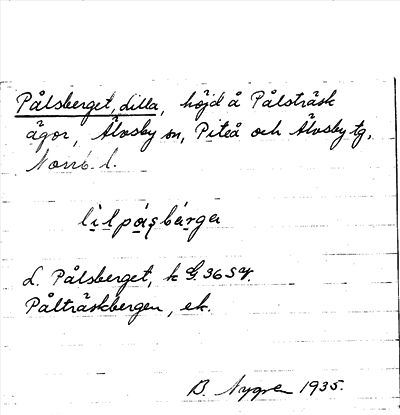 Pålsberget, lilla, höjd å Pålsträsk
ägor, Älvsby sn, Piteå och Älvsby tg,
Norrb. l.
lilpåsbärga
L. Pålsberget, k G. 36 SV.
Pålträskbergen, ek.
B. Nygre 1935.